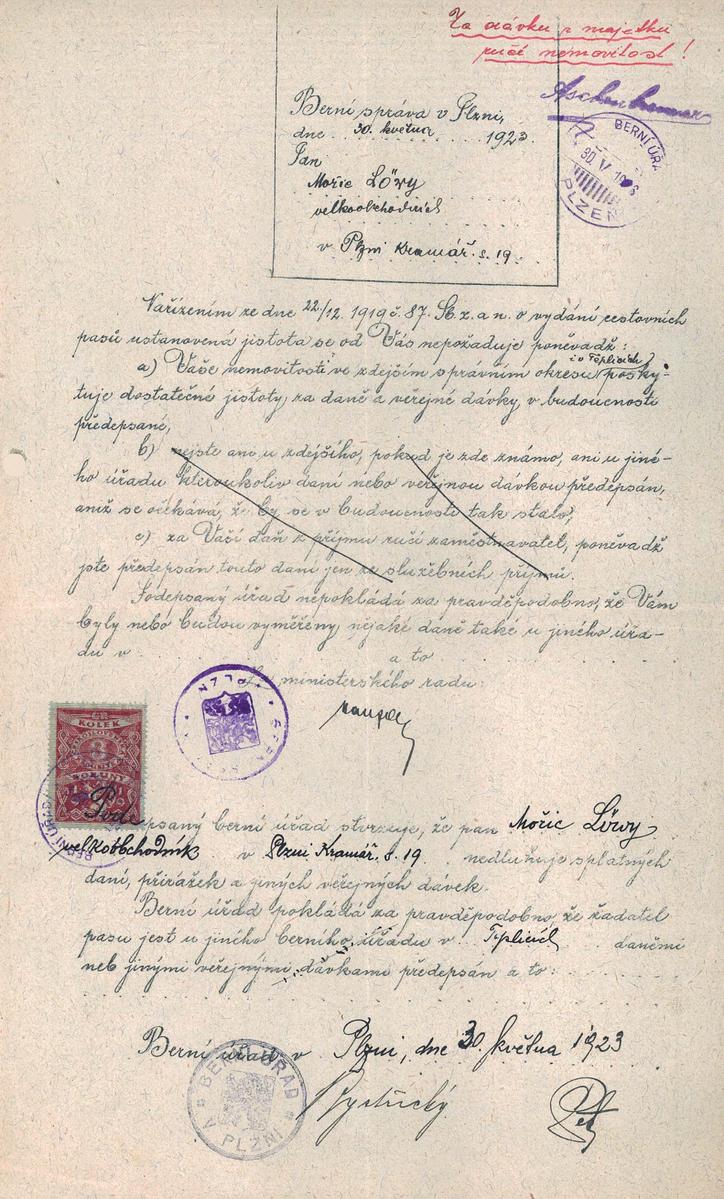 Za dávku z majetku
ručí nemovitost!
Berní správa v Plzni,
dne 30. května 1923.
Pan
Mořic Löwy
velkoobchodník
v Plzni Kramář. s. 19.
BERNÍ ÚŘAD
30. V. 1923
PLZEŇ
Nařízením ze dne 22/12. 1919 č. 87. Sb. z. a n. o vydání cestovních
pasů ustanovená jistota se od Vás nepožaduje poněvadž:
i v Teplicích
a) Vaše nemovitosti ve zdejším správním okresu posky-
tuje dostatečné jistoty za daně a veřejné dávky, v budoucnosti
předepsané,
b) nejste ani u zdejšího, pokud je zde známo, ani u jiné-
ho úřadu kteroukoliv daní nebo veřejnou dávkou předepsán,
aniž se očekává, že by se v budoucnosti tak stalo,
c) za Vaši daň z příjmu ručí zaměstnavatel, poněvadž
jste předepsán touto daní jen ze služebních příjmů.
Podepsaný úřad nepokládá za pravděpodobno, že Vám
byly nebo budou vyměřeny nějaké daně také u jiného úřa-
du v a to
ministerského radu:
KOLEK
KORUNY
Podepsaný berní úřad stvrzuje, že pan Mořic Löwy
velkoobchodník v Plzni Kramář. s. 19. nedluhuje splatných
daní, přirážek a jiných veřejných dávek.
Berní úřad pokládá za pravděpodobno, že žadatel
pasu jest u jiného berního úřadu v Teplicích daněmi
neb jinými veřejnými dávkami předepsán a to:
Berní úřad v Plzni, dne 30. května 1923
BERNÍ ÚŘAD
V PLZNI